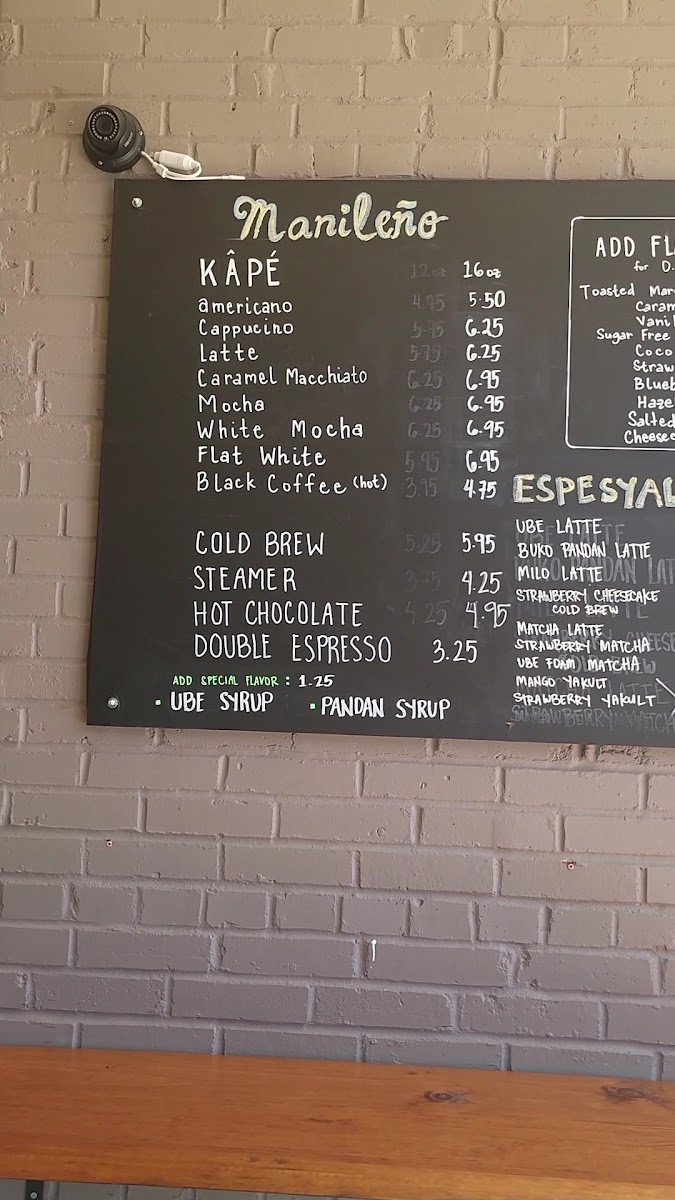 Manileño
KÂPÉ 12oz 16oz
americano 4.95 5.50
Cappucino 5.75 6.25
Latte 5.75 6.25
Caramel Macchiato 6.25 6.95
Mocha 6.25 6.95
White Mocha 6.25 6.95
Flat White 5.95 6.95
Black Coffee (hot) 3.95 4.75
COLD BREW 5.25 5.95
STEAMER 4.25
HOT CHOCOLATE 4.25 4.95
DOUBLE ESPRESSO 3.25
ADD SPECIAL FLAVOR : 1.25
• UBE SYRUP • PANDAN SYRUP
ADD FL
for D.
Toasted Mar
Caram
Vanil
Sugar Free
Coco
Straw
Blueb
Haze
Salted
Cheese
ESPESYAL
UBE LATTE
BUKO PANDAN LATTE
MILO LATTE
STRAWBERRY CHEESECAKE
COLD BREW
MATCHA LATTE
STRAWBERRY MATCHA
UBE FOAM MATCHA
MANGO YAKULT
STRAWBERRY YAKULT